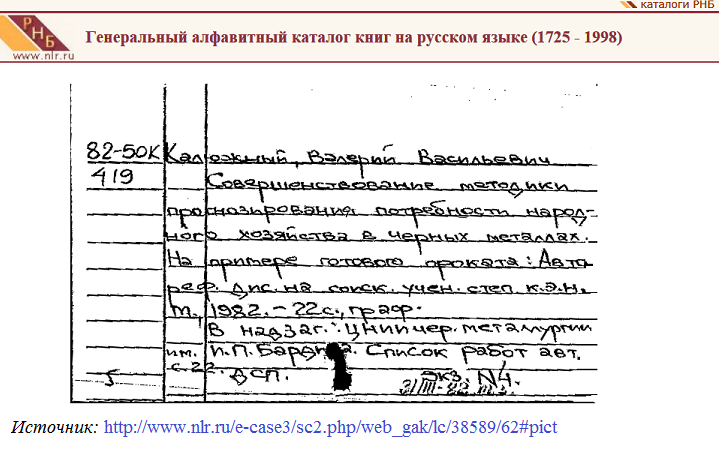 каталоги РНБ
РНБ
www.nlr.ru
Генеральный алфавитный каталог книг на русском языке (1725 - 1998)
82-50К Калюжный, Валерий Васильевич
419 Совершенствование методики
прогнозирования потребности народ-
ного хозяйства в черных металлах.
На примере готового проката: Авто
реф. дис. на соиск. учен. степ. к.э.н.
М., 1982. - 22 с., граф.
В надзаг.: ЦНИИ чер. металлургии
им. И.П. Бардина. Список работ авт.
с. 22. ДСП. Экз. №4.
Источник: http://www.nlr.ru/e-case3/sc2.php/web_gak/lc/38589/62#pict